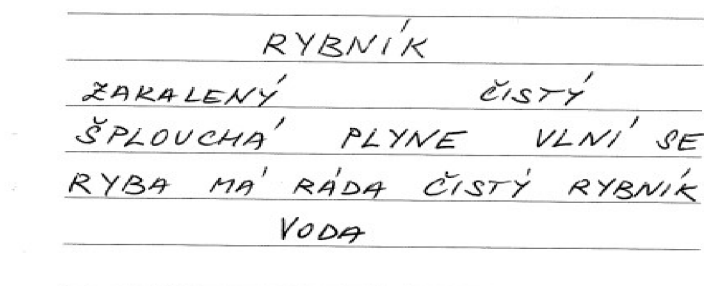 RYBNÍK
ZAKALENÝ ČISTÝ
ŠPLOUCHÁ PLYNE VLNÍ SE
RYBA MÁ RÁDA ČISTÝ RYBNÍK
VODA